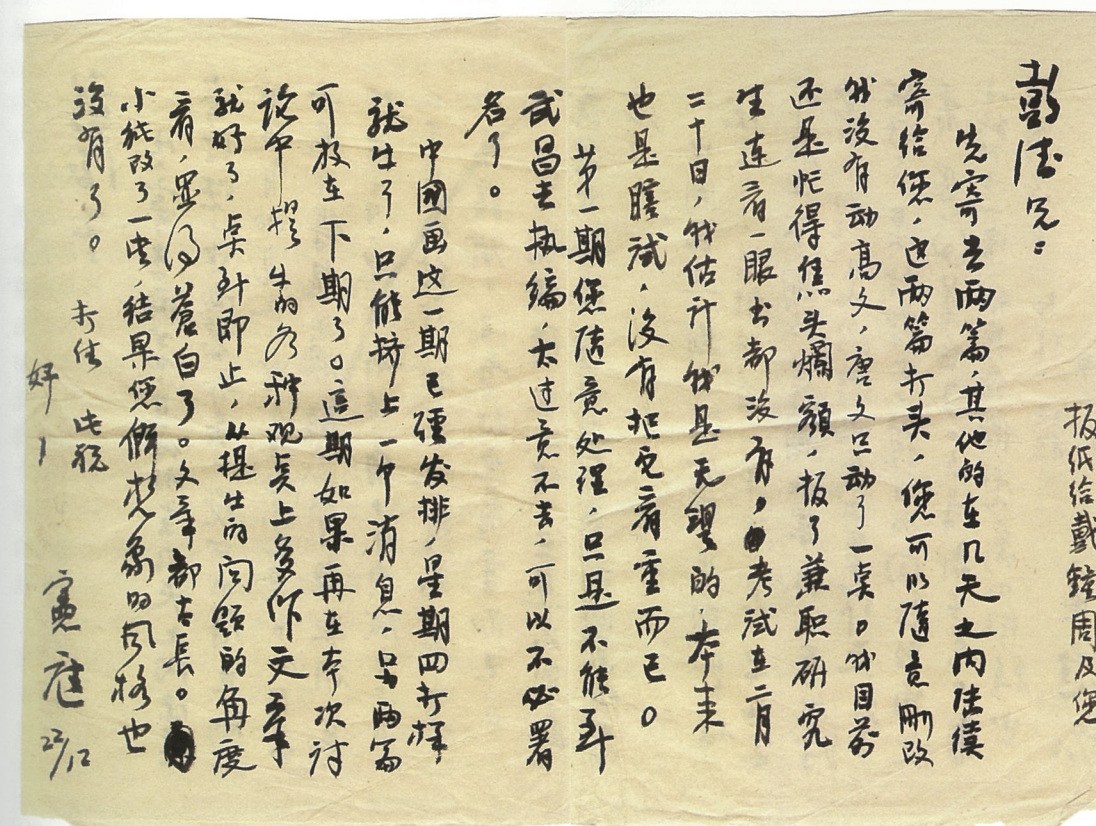 报纸给戴镜周及您
彭德兄：
先寄去两篇，其他的在几天之内陆续
寄给您，这两篇打头，您可以随意刪改
我没有动高文，唐文只动了一点。我目前
还是忙得焦头爛額，报了兼职研究
生连看一眼书都没有，考试在二月
二十日，我估计我是无望的，本来
也是瞎试，没有把它看重而已。
第一期您随意处理，只是不能到
武昌去执编，太过意不去，可以不必署
名了。
中國画这一期已經发排，星期四打样，
就出了，只能挤上一个消息，另两篇
可放在下期了。這期如果再在本次讨
论中提出的各种观点上多作文章
就好了，点到即止，从提出的问题的角度
看，显得蒼白了。文章都古長。
小能改了一些，结果您佩楚象的风格也
没有了。
此祝
好！
憲庭 22/12